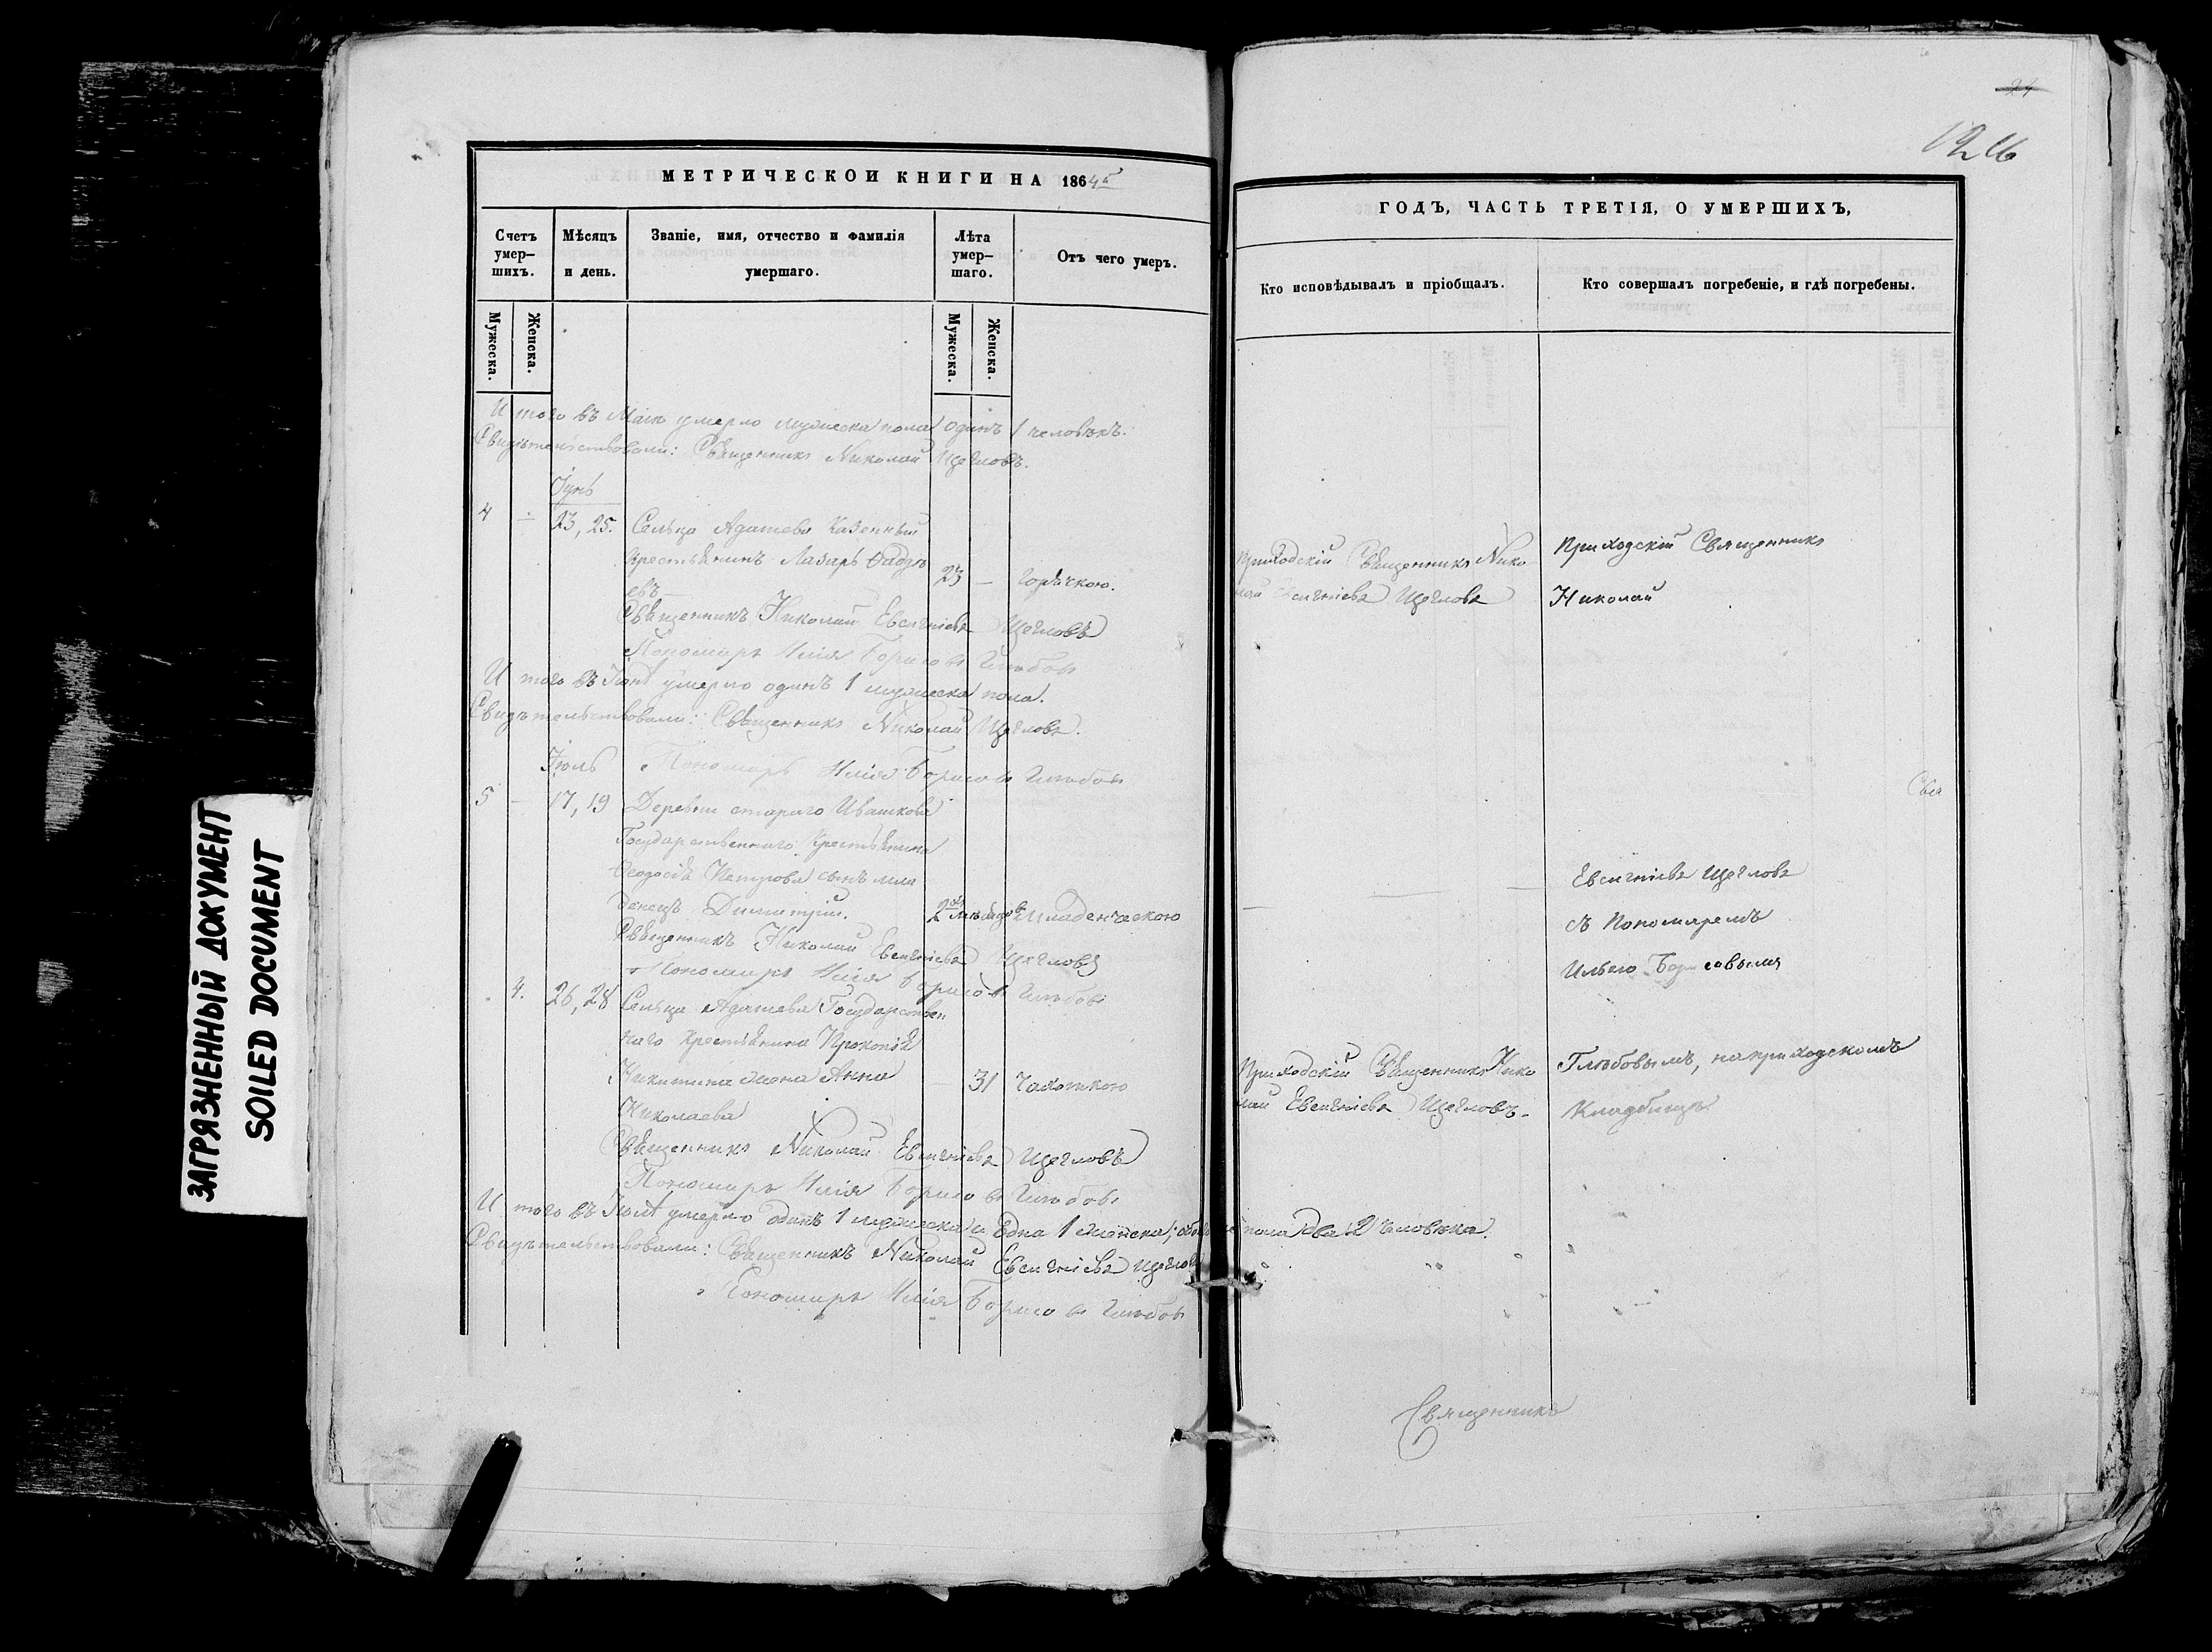 МЕТРИЧЕСКОЙ КНИГИ НА 1864й
Счетъ умер-шихъ.
Мѣсяцъ и день.
Званіе, имя, отчество и фамилія умершаго.
Лѣта умер-шаго.
Отъ чего умеръ.
Мужеска.
Женска.
Мужеска.
Женска.
И того въ Маіѣ умерло мужеска пола одинъ 1 человѣкъ.
Свидѣтельствовали: Священникъ Николай Щегловъ.
Іунь
4 — 23, 25. Сельца Адашева Казенный
крестьянинъ Лазарь Фадѣе
евъ 23 — Горячкою.
Священникъ Николай Евсигніевъ Щегловъ
Пономарь Илія Борисовъ Глѣбовъ
И того въ Іюнѣ умерло одинъ 1 мужеска пола.
Свидѣтельствовали: Священникъ Николай Щегловъ.
Іюль Пономарь Илія Борисовъ Глѣбовъ
5 — 17, 19 Деревни стараго Ивашкова
Государственнаго Крестьянина
Ѳеодосія Петрова сынъ мла
денецъ Димитрій. 2хъ мѣсяцовъ Младенческою
Священникъ Николай Евсигніевъ Щегловъ
Пономарь Илія Борисовъ Глѣбовъ
4. 26, 28 Сельца Адашева Государствен
наго Крестьянина Прокопія
Никитина жена Анна — 31 Чахоткою
Николаева
Священникъ Николай Евсигніевъ Щегловъ
Пономарь Илія Борисовъ Глѣбовъ
И того въ Іюлѣ умерло одинъ 1 мужеска и Една 1 женска; обоего пола два 2 человѣка.
Свидѣтельствовали: Священникъ Николай Евсигніевъ Щегловъ
Пономарь Илія Борисовъ Глѣбовъ
24
ГОДЪ, ЧАСТЬ ТРЕТІЯ, О УМЕРШИХЪ,
Кто исповѣдывалъ и пріобщалъ.
Кто совершалъ погребеніе, и гдѣ погребены.
Приходскій Священникъ Нико
лай Евсигніевъ Щегловъ
Приходскій Священникъ
Николай
Свя
Евсигніевъ Щегловъ
съ Пономаремъ
Ильею Борисовымъ
Приходскій Священникъ Нико
лай Евсигніевъ Щегловъ.
Глѣбовымъ, на приходскомъ
Кладбищѣ.
Священникъ
ЗАГРЯЗНЕННЫЙ ДОКУМЕНТ
SOILED DOCUMENT